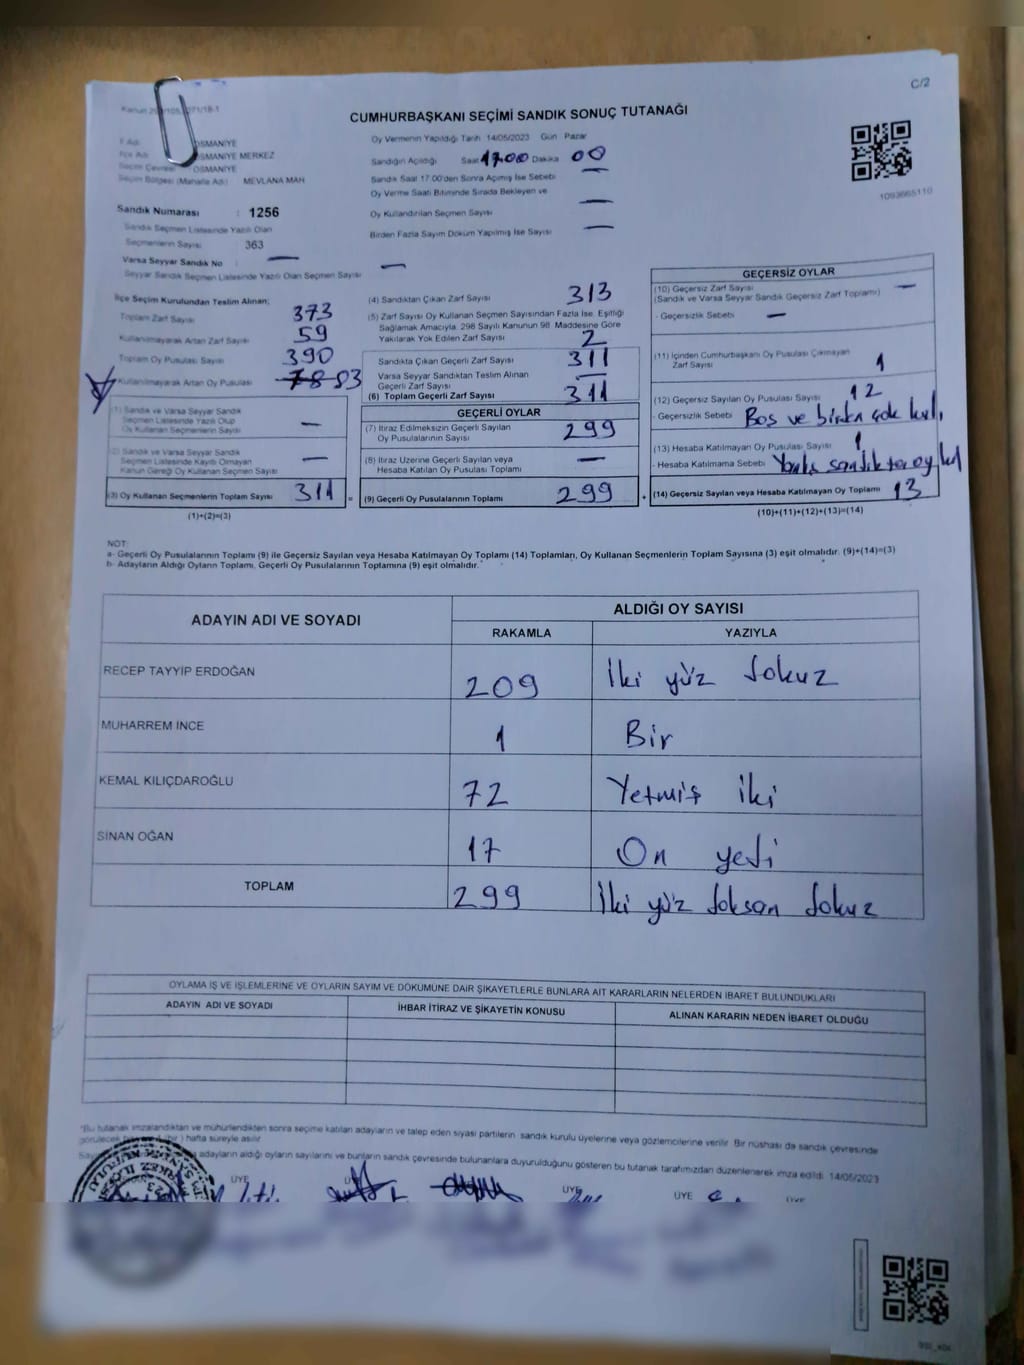 C/2
CUMHURBAŞKANI SEÇİMİ SANDIK SONUÇ TUTANAĞI
1093665110
İl Adı OSMANİYE
İlçe Adı OSMANİYE MERKEZ
Seçim Çevresi OSMANİYE
Seçim Bölgesi (Mahalle Adı) MEVLANA MAH
Sandık Numarası : 1256
Sandık Seçmen Listesinde Yazılı Olan
Seçmenlerin Sayısı 363
Varsa Seyyar Sandık No : —
Seyyar Sandık Seçmen Listesinde Yazılı Olan Seçmen Sayısı —
Oy Vermenin Yapıldığı Tarih 14/05/2023 Gün Pazar
Sandığın Açıldığı Saat 17.00 Dakika 00
Sandık Saat 17.00'den Sonra Açılmış İse Sebebi —
Oy Verme Saati Bitiminde Sırada Bekleyen ve
Oy Kullandırılan Seçmen Sayısı —
Birden Fazla Sayım Döküm Yapılmış İse Sayısı —
İlçe Seçim Kurulundan Teslim Alınan;
Toplam Zarf Sayısı 373
Kullanılmayarak Artan Zarf Sayısı 59
Toplam Oy Pusulası Sayısı 390
Kullanılmayarak Artan Oy Pusulası 78 83
(1) Sandık ve Varsa Seyyar Sandık
Seçmen Listesinde Yazılı Olup
Oy Kullanan Seçmenlerin Sayısı —
(2) Sandık ve Varsa Seyyar Sandık
Seçmen Listesinde Kayıtlı Olmayan
Kanun Gereği Oy Kullanan Seçmen Sayısı —
(3) Oy Kullanan Seçmenlerin Toplam Sayısı 311
(1)+(2)=(3)
(4) Sandıktan Çıkan Zarf Sayısı 313
(5) Zarf Sayısı Oy Kullanan Seçmen Sayısından Fazla İse, Eşitliği
Sağlamak Amacıyla, 298 Sayılı Kanunun 98. Maddesine Göre
Yakılarak Yok Edilen Zarf Sayısı 2
Sandıkta Çıkan Geçerli Zarf Sayısı 311
Varsa Seyyar Sandıktan Teslim Alınan
Geçerli Zarf Sayısı —
(6) Toplam Geçerli Zarf Sayısı 311
GEÇERLİ OYLAR
(7) İtiraz Edilmeksizin Geçerli Sayılan
Oy Pusulalarının Sayısı 299
(8) İtiraz Üzerine Geçerli Sayılan veya
Hesaba Katılan Oy Pusulası Toplamı —
= (9) Geçerli Oy Pusulalarının Toplamı 299
GEÇERSİZ OYLAR
(10) Geçersiz Zarf Sayısı
(Sandık ve Varsa Seyyar Sandık Geçersiz Zarf Toplamı) —
- Geçersizlik Sebebi —
(11) İçinden Cumhurbaşkanı Oy Pusulası Çıkmayan
Zarf Sayısı 1
(12) Geçersiz Sayılan Oy Pusulası Sayısı 12
- Geçersizlik Sebebi Boş ve birden çok kul.
(13) Hesaba Katılmayan Oy Pusulası Sayısı 1
- Hesaba Katılmama Sebebi Yanlış sandıkta oy kul
+ (14) Geçersiz Sayılan veya Hesaba Katılmayan Oy Toplamı 13
(10)+(11)+(12)+(13)=(14)
NOT:
a- Geçerli Oy Pusulalarının Toplamı (9) ile Geçersiz Sayılan veya Hesaba Katılmayan Oy Toplamı (14) Toplamları, Oy Kullanan Seçmenlerin Toplam Sayısına (3) eşit olmalıdır. (9)+(14)=(3)
b- Adayların Aldığı Oyların Toplamı, Geçerli Oy Pusulalarının Toplamına (9) eşit olmalıdır.
ADAYIN ADI VE SOYADI ALDIĞI OY SAYISI
RAKAMLA YAZIYLA
RECEP TAYYİP ERDOĞAN 209 İki yüz dokuz
MUHARREM İNCE 1 Bir
KEMAL KILIÇDAROĞLU 72 Yetmiş iki
SİNAN OĞAN 17 On yedi
TOPLAM 299 İki yüz doksan dokuz
OYLAMA İŞ VE İŞLEMLERİNE VE OYLARIN SAYIM VE DÖKÜMÜNE DAİR ŞİKAYETLERLE BUNLARA AİT KARARLARIN NELERDEN İBARET BULUNDUKLARI
ADAYIN ADI VE SOYADI İHBAR İTİRAZ VE ŞİKAYETİN KONUSU ALINAN KARARIN NEDEN İBARET OLDUĞU
*Bu tutanak imzalandıktan ve mühürlendikten sonra seçime katılan adayların ve talep eden siyasi partilerin sandık kurulu üyelerine veya gözlemcilerine verilir. Bir nüshası da sandık çevresinde
görülecek hafta süreyle asılır.
adayların aldığı oyların sayılarını ve bunların sandık çevresinde bulunanlara duyurulduğunu gösteren bu tutanak tarafımızdan düzenlenerek imza edildi. 14/05/2023
ÜYE ÜYE ÜYE ÜYE